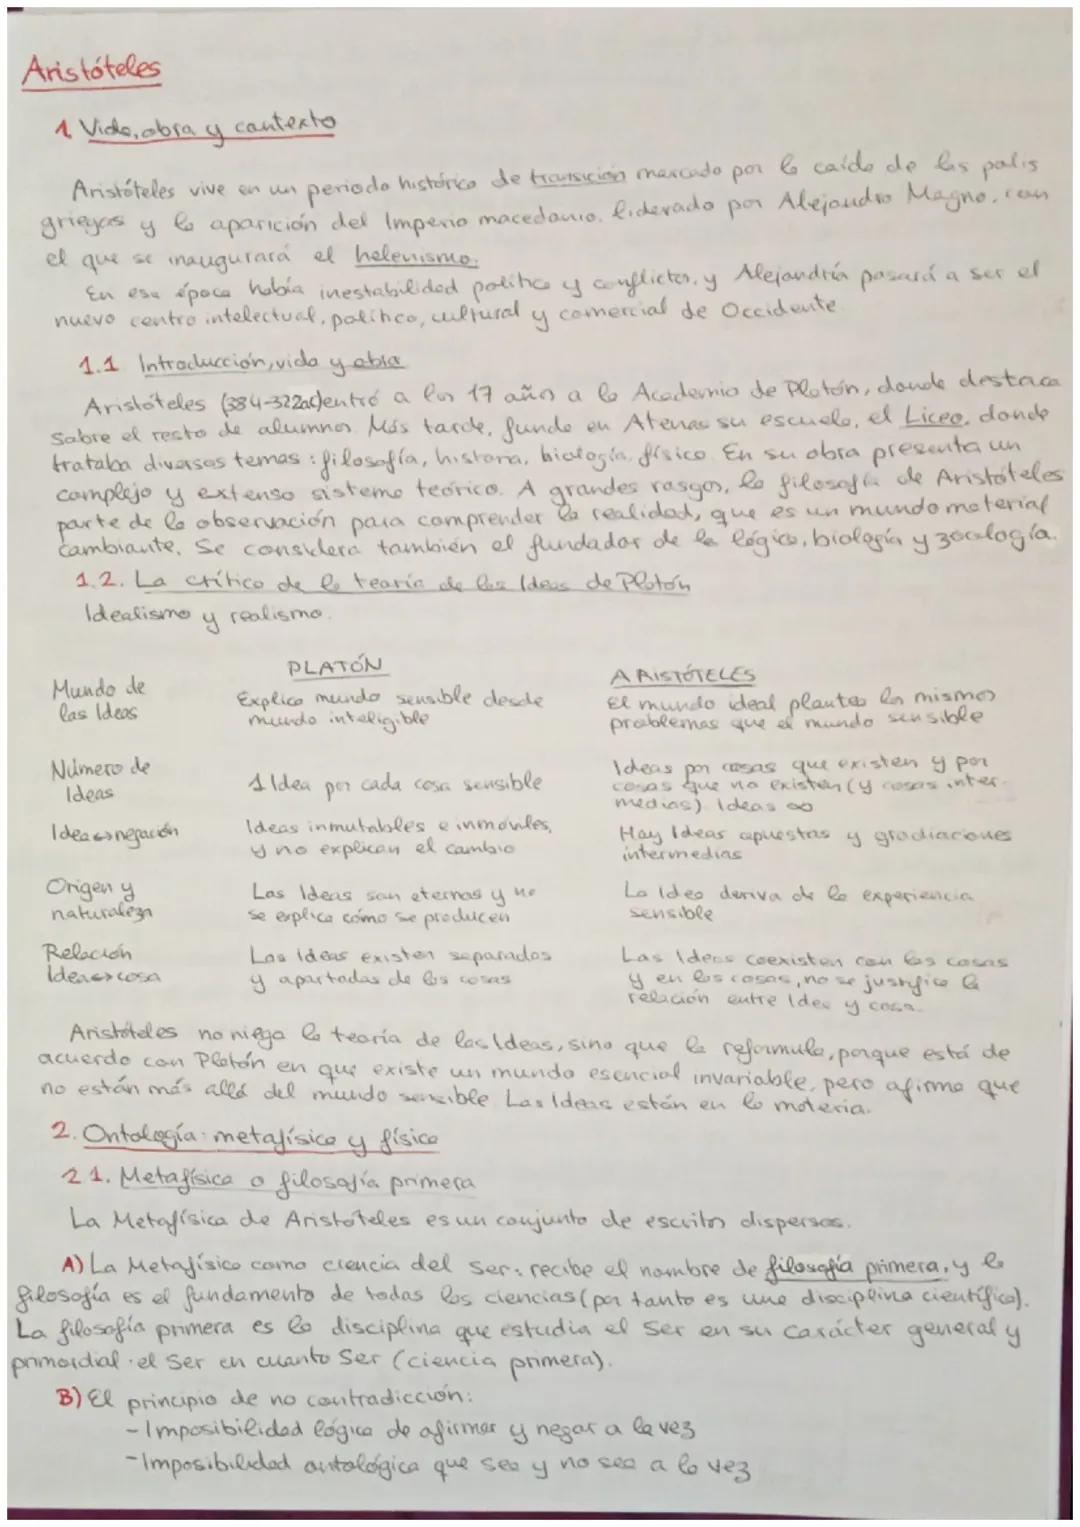 Aristóteles
1 Vida, obra y contexto
Aristóteles vive en un periodo histórico de transición marcado por la caída de las polis
griegas y la aparición del Imperio macedonio, liderado por Alejandro Magno, con
el que se inaugurará el helenismo.
En esa época había inestabilidad política y conflictos, y Alejandría pasará a ser el
nuevo centro intelectual, político, cultural y comercial de Occidente.
1.1 Introducción, vida y obra
Aristóteles (384-322ac) entró a los 17 años a la Academia de Platón, donde destaca
sobre el resto de alumnos. Más tarde, funda en Atenas su escuela, el Liceo, donde
trataba diversos temas: filosofía, historia, biología, físico. En su obra presenta un
complejo y extenso sistema teórico. A grandes rasgos, la filosofía de Aristóteles
parte de la observación para comprender la realidad, que es un mundo material
cambiante. Se considera también el fundador de la lógica, biología y zoología.
1.2. La crítica de la teoría de las Ideas de Platón
Idealismo y realismo.
PLATÓN
ARISTÓTELES
Mundo de
las Ideas
Explica mundo sensible desde
mundo inteligible
El mundo ideal plantea los mismos
problemas que el mundo sensible
Número de
Ideas
1 Idea por cada cosa sensible
Ideas por cosas que existen y por
cosas que no existen (y cosas inter-
medias). Ideas ∞
Idea↔negación
Ideas inmutables e inmóviles,
y no explican el cambio
Hay Ideas opuestas y gradiaciones
intermedias
Origen y
naturaleza
Las Ideas son eternas y no
se explica cómo se producen
La Idea deriva de la experiencia
sensible
Relación
Idea↔cosa
Las Ideas existen separadas
y apartadas de las cosas
Las Ideas coexisten con las cosas
y en las cosas, no se justifica la
relación entre Idea y cosa.
Aristóteles no niega la teoría de las Ideas, sino que la reformula, porque está de
acuerdo con Platón en que existe un mundo esencial invariable, pero afirma que
no están más allá del mundo sensible. Las Ideas están en la materia.
2. Ontología: metafísica y física
2.1. Metafísica o filosofía primera
La Metafísica de Aristóteles es un conjunto de escritos dispersos.
A) La Metafísica como ciencia del Ser: recibe el nombre de filosofía primera, y la
filosofía es el fundamento de todas las ciencias (por tanto es una disciplina científica).
La filosofía primera es la disciplina que estudia el Ser en su carácter general y
primordial: el Ser en cuanto Ser (ciencia primera).
B) El principio de no contradicción:
- Imposibilidad lógica de afirmar y negar a la vez
- Imposibilidad ontológica que sea y no sea a la vez